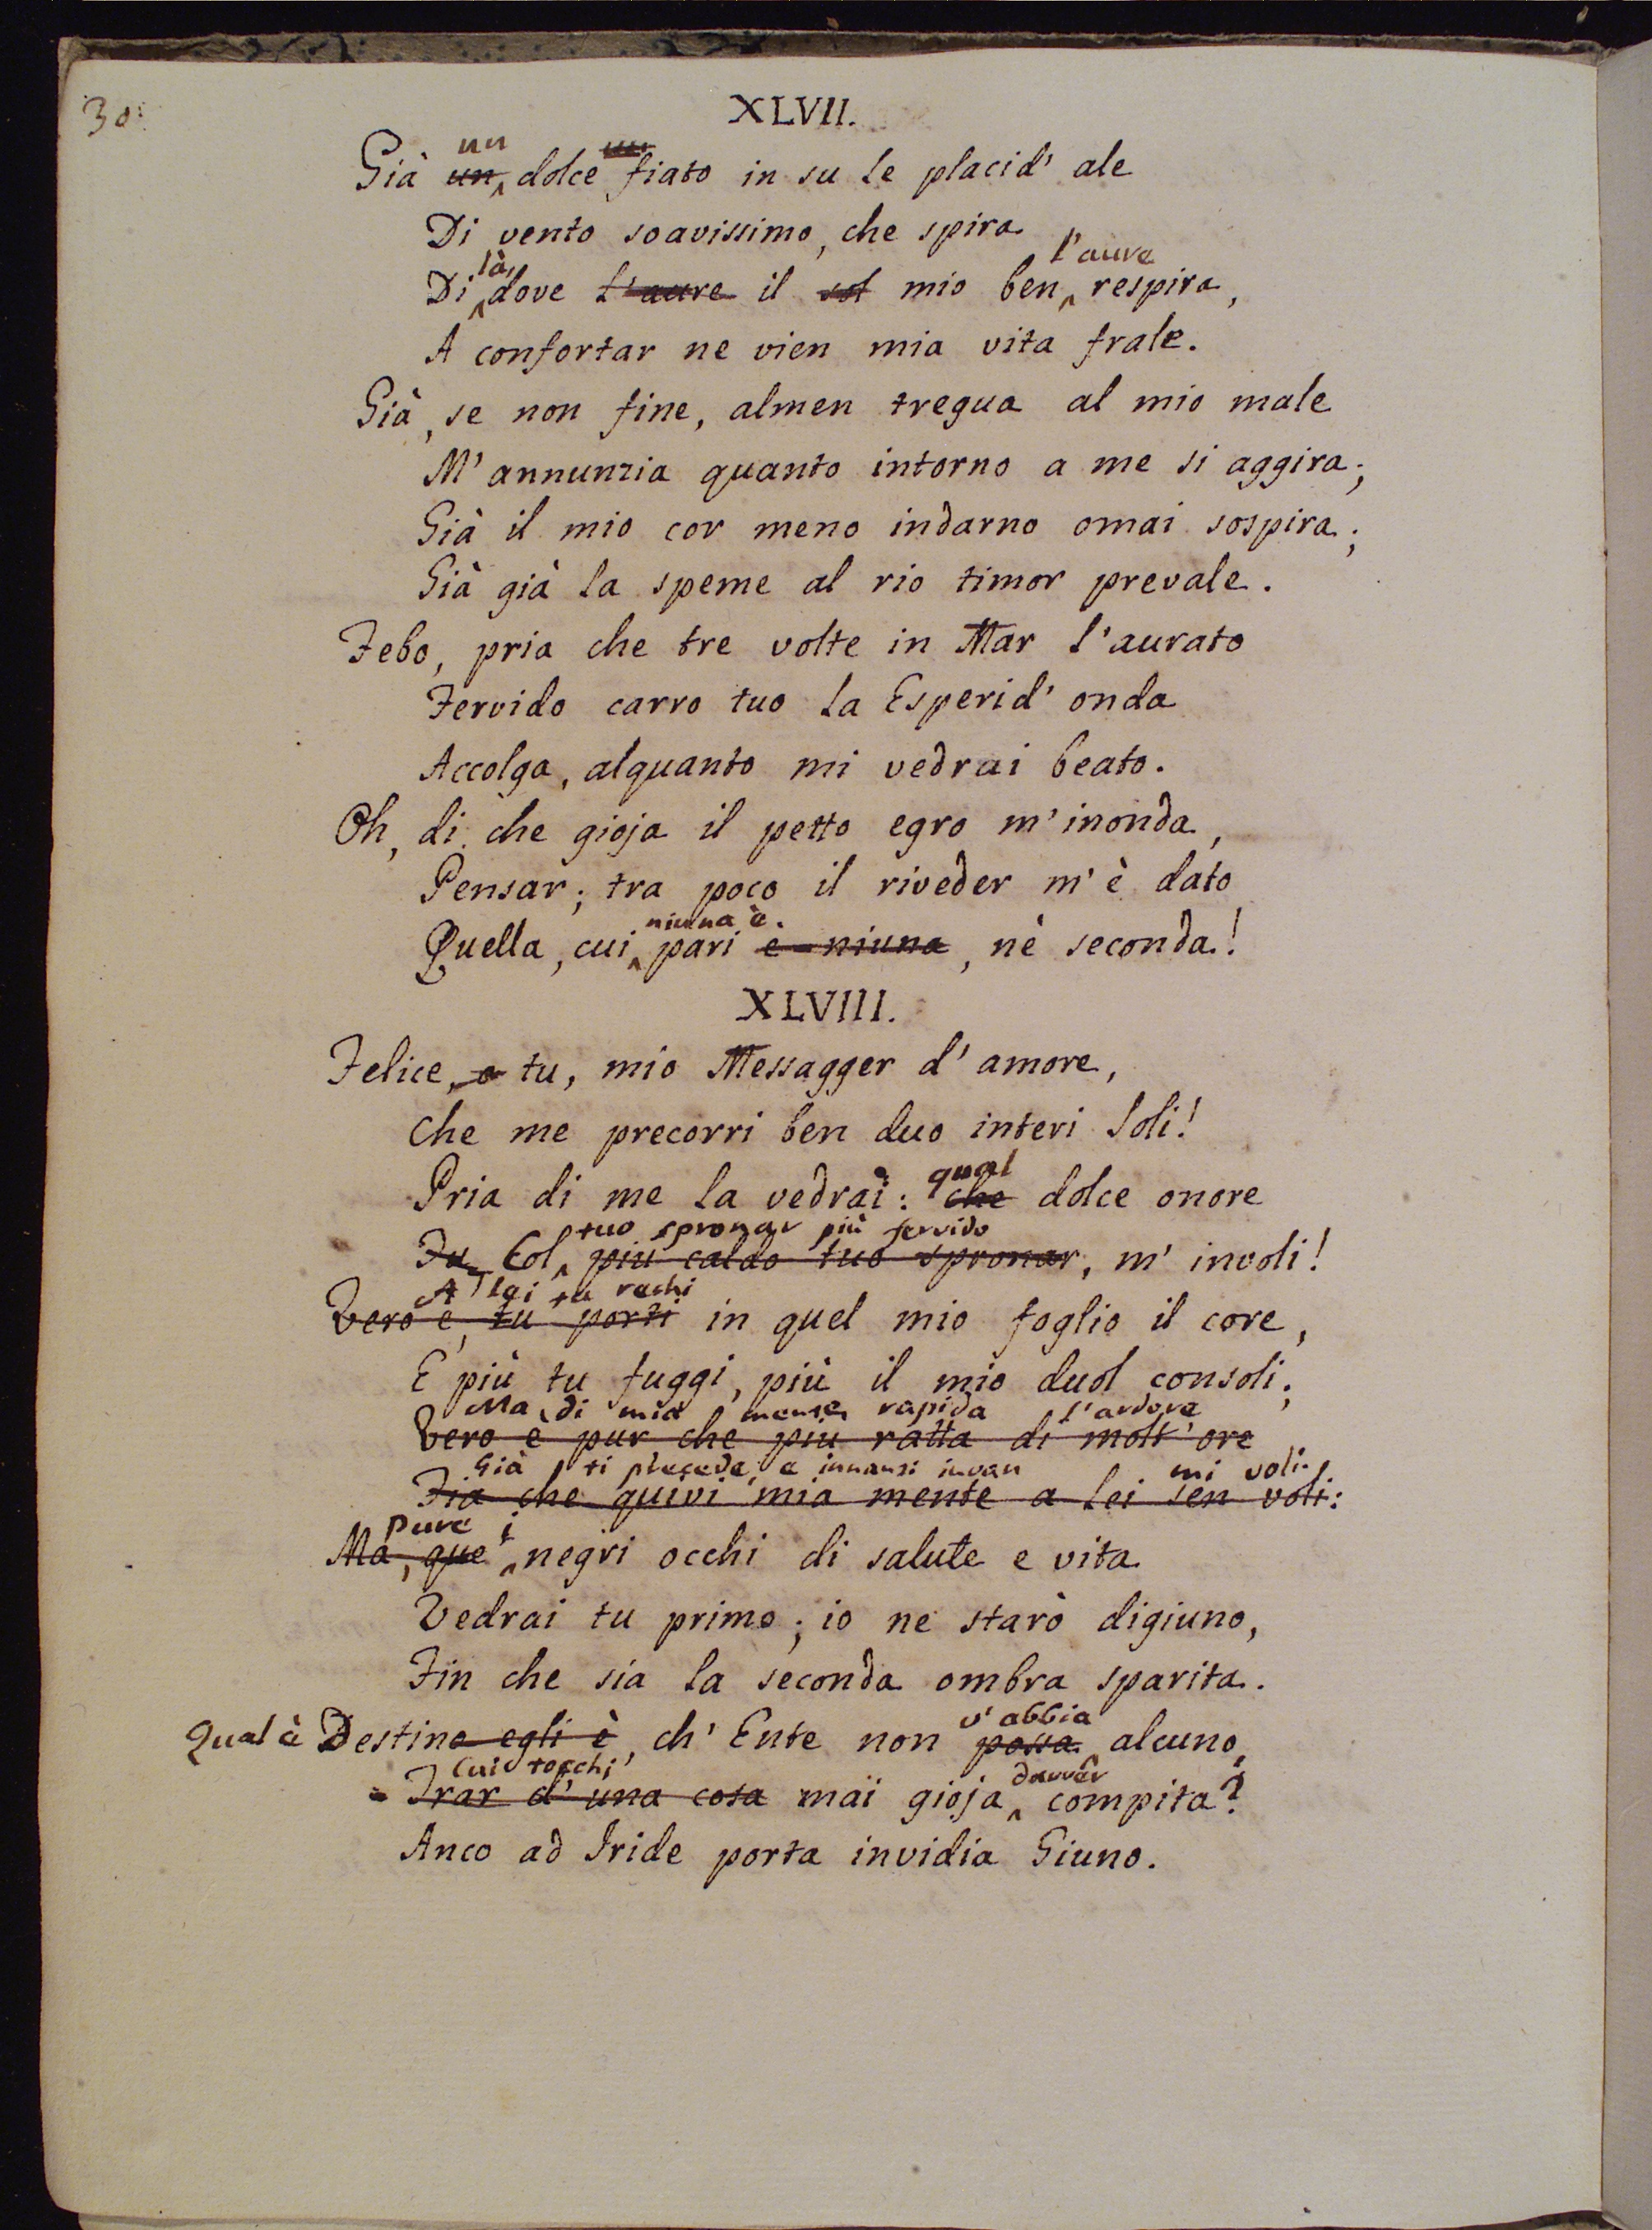 30.
XLVII.
un un
Già un dolce fiato in su le placid' ale
Di vento soavissimo, che spira
là, l'aure
Di dove l'aure il sol mio ben respira,
A confortar ne vien mia vita frale.
Già, se non fine, almen tregua al mio male
M' annunzia quanto intorno a me si aggira;
Già il mio cor meno indarno omai sospira;
Già già la speme al rio timor prevale.
Febo, pria che tre volte in Mar l'aurato
Fervido carro tuo la Esperid' onda
Accolga, alquanto mi vedrai beato.
Oh, di che gioja il petto egro m' inonda,
Pensar; tra poco il riveder m' è dato
niuna è.
Quella, cui pari è niuna, nè seconda!
XLVIII.
Felice, o tu, mio Messagger d' amore,
Che me precorri ben duo interi Soli!
qual
Pria di me la vedrai: che dolce onore
tuo spronar più fervido
Tu Col più caldo tuo spronar, m' involi!
A lei tu rechi
Vero è, tu porti in quel mio foglio il core,
E più tu fuggi, più il mio duol consoli;
Ma di mia mente rapida l'ardore
Vero è pur che più ratta di molt' ore
Già ti precede, e innanzi invan mi voli.
Fia che quivi mia mente a lei sen voli:
Pure i
Ma, que' negri occhi di salute e vita
Vedrai tu primo; io ne starò digiuno,
Fin che sia la seconda ombra sparita.
v' abbia
Qual è Destino egli è, ch' Ente non possa alcuno,
Cui tocchi davver
Trar d' una cosa mai gioja compita?
Anco ad Iride porta invidia Giuno.